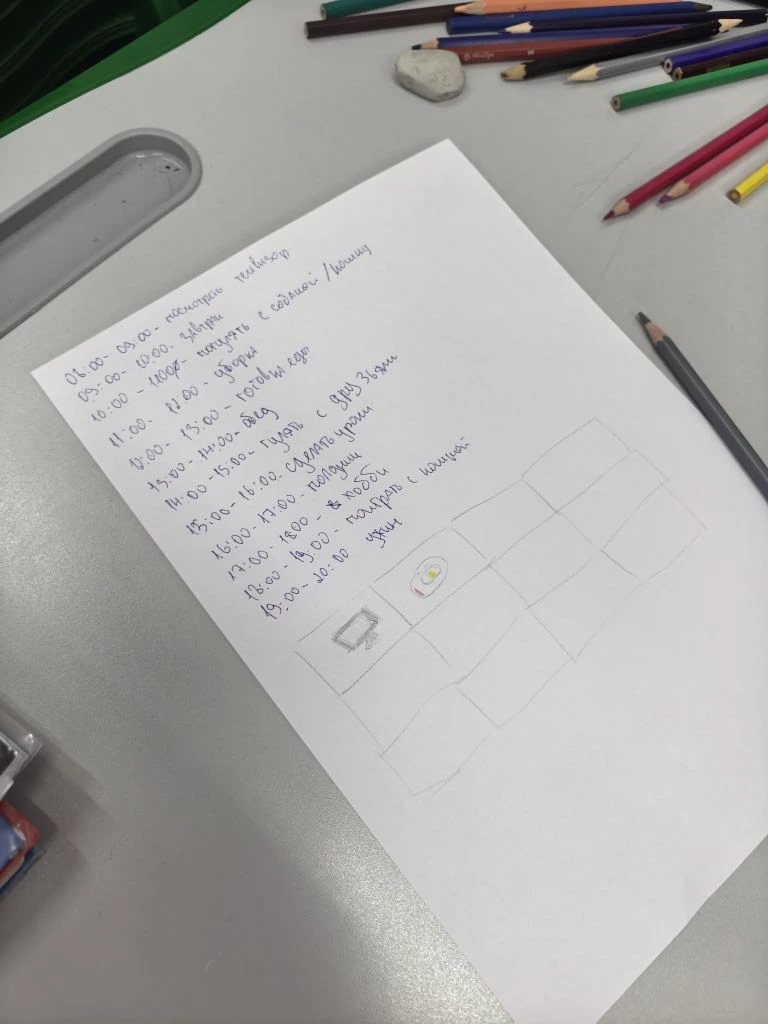 08:00- 09:00- посмотреть телевизор
09:00- 10:00- завтрак
10:00 - 11:00 - погулять с собакой /кошку
11:00- 12:00 - уборка
12:00 - 13:00 - готовка еды
13:00 - 14:00- обед
14:00 -15:00- гулять с друзьями
15:00 - 16:00- сделать уроки
16:00- 17:00- полдник
17:00- 1800 - хобби
18:00 - 19:00- поиграть с кошкой
19:00- 20:00 ужин